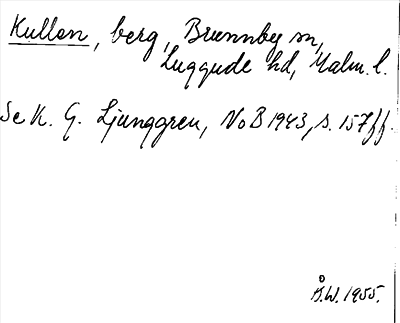 Kullen, berg, Brunnby sn,
Luggude hd, Malm. l.
Se K. G. Ljunggren, NoB 1943, s. 157 ff.
Å.W. 1955.